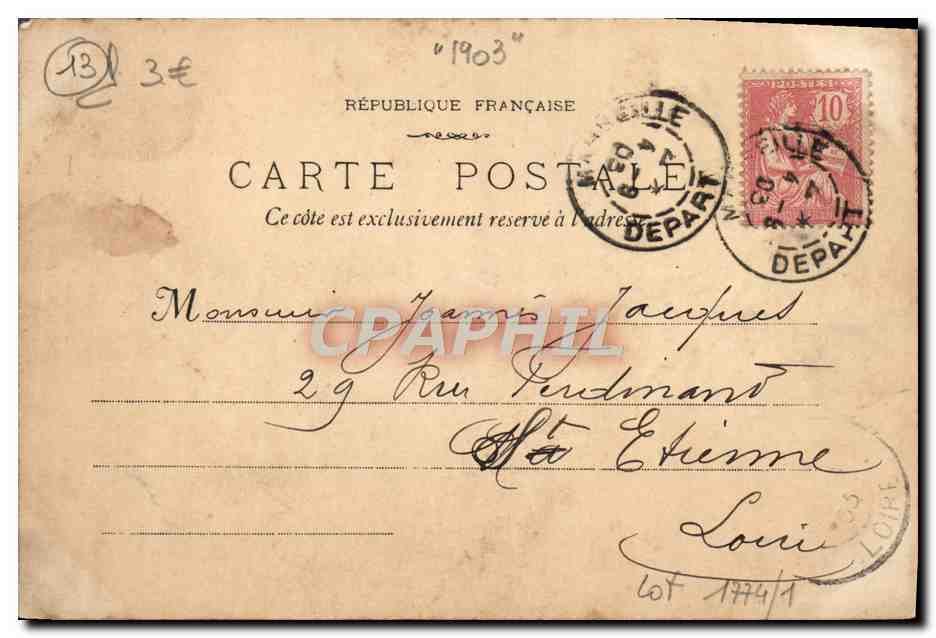 13
3€
"1903"
RÉPUBLIQUE FRANÇAISE
CARTE POSTALE
Ce côté est exclusivement reservé à l'adresse
POSTES
10
MARSEILLE
4
03
DEPART
DEPART
Monsieur Joannès Jacques
CPAPHIL
29 Rue Ferdinand
St Etienne
Loire
LOIRE
Lot 1774/1